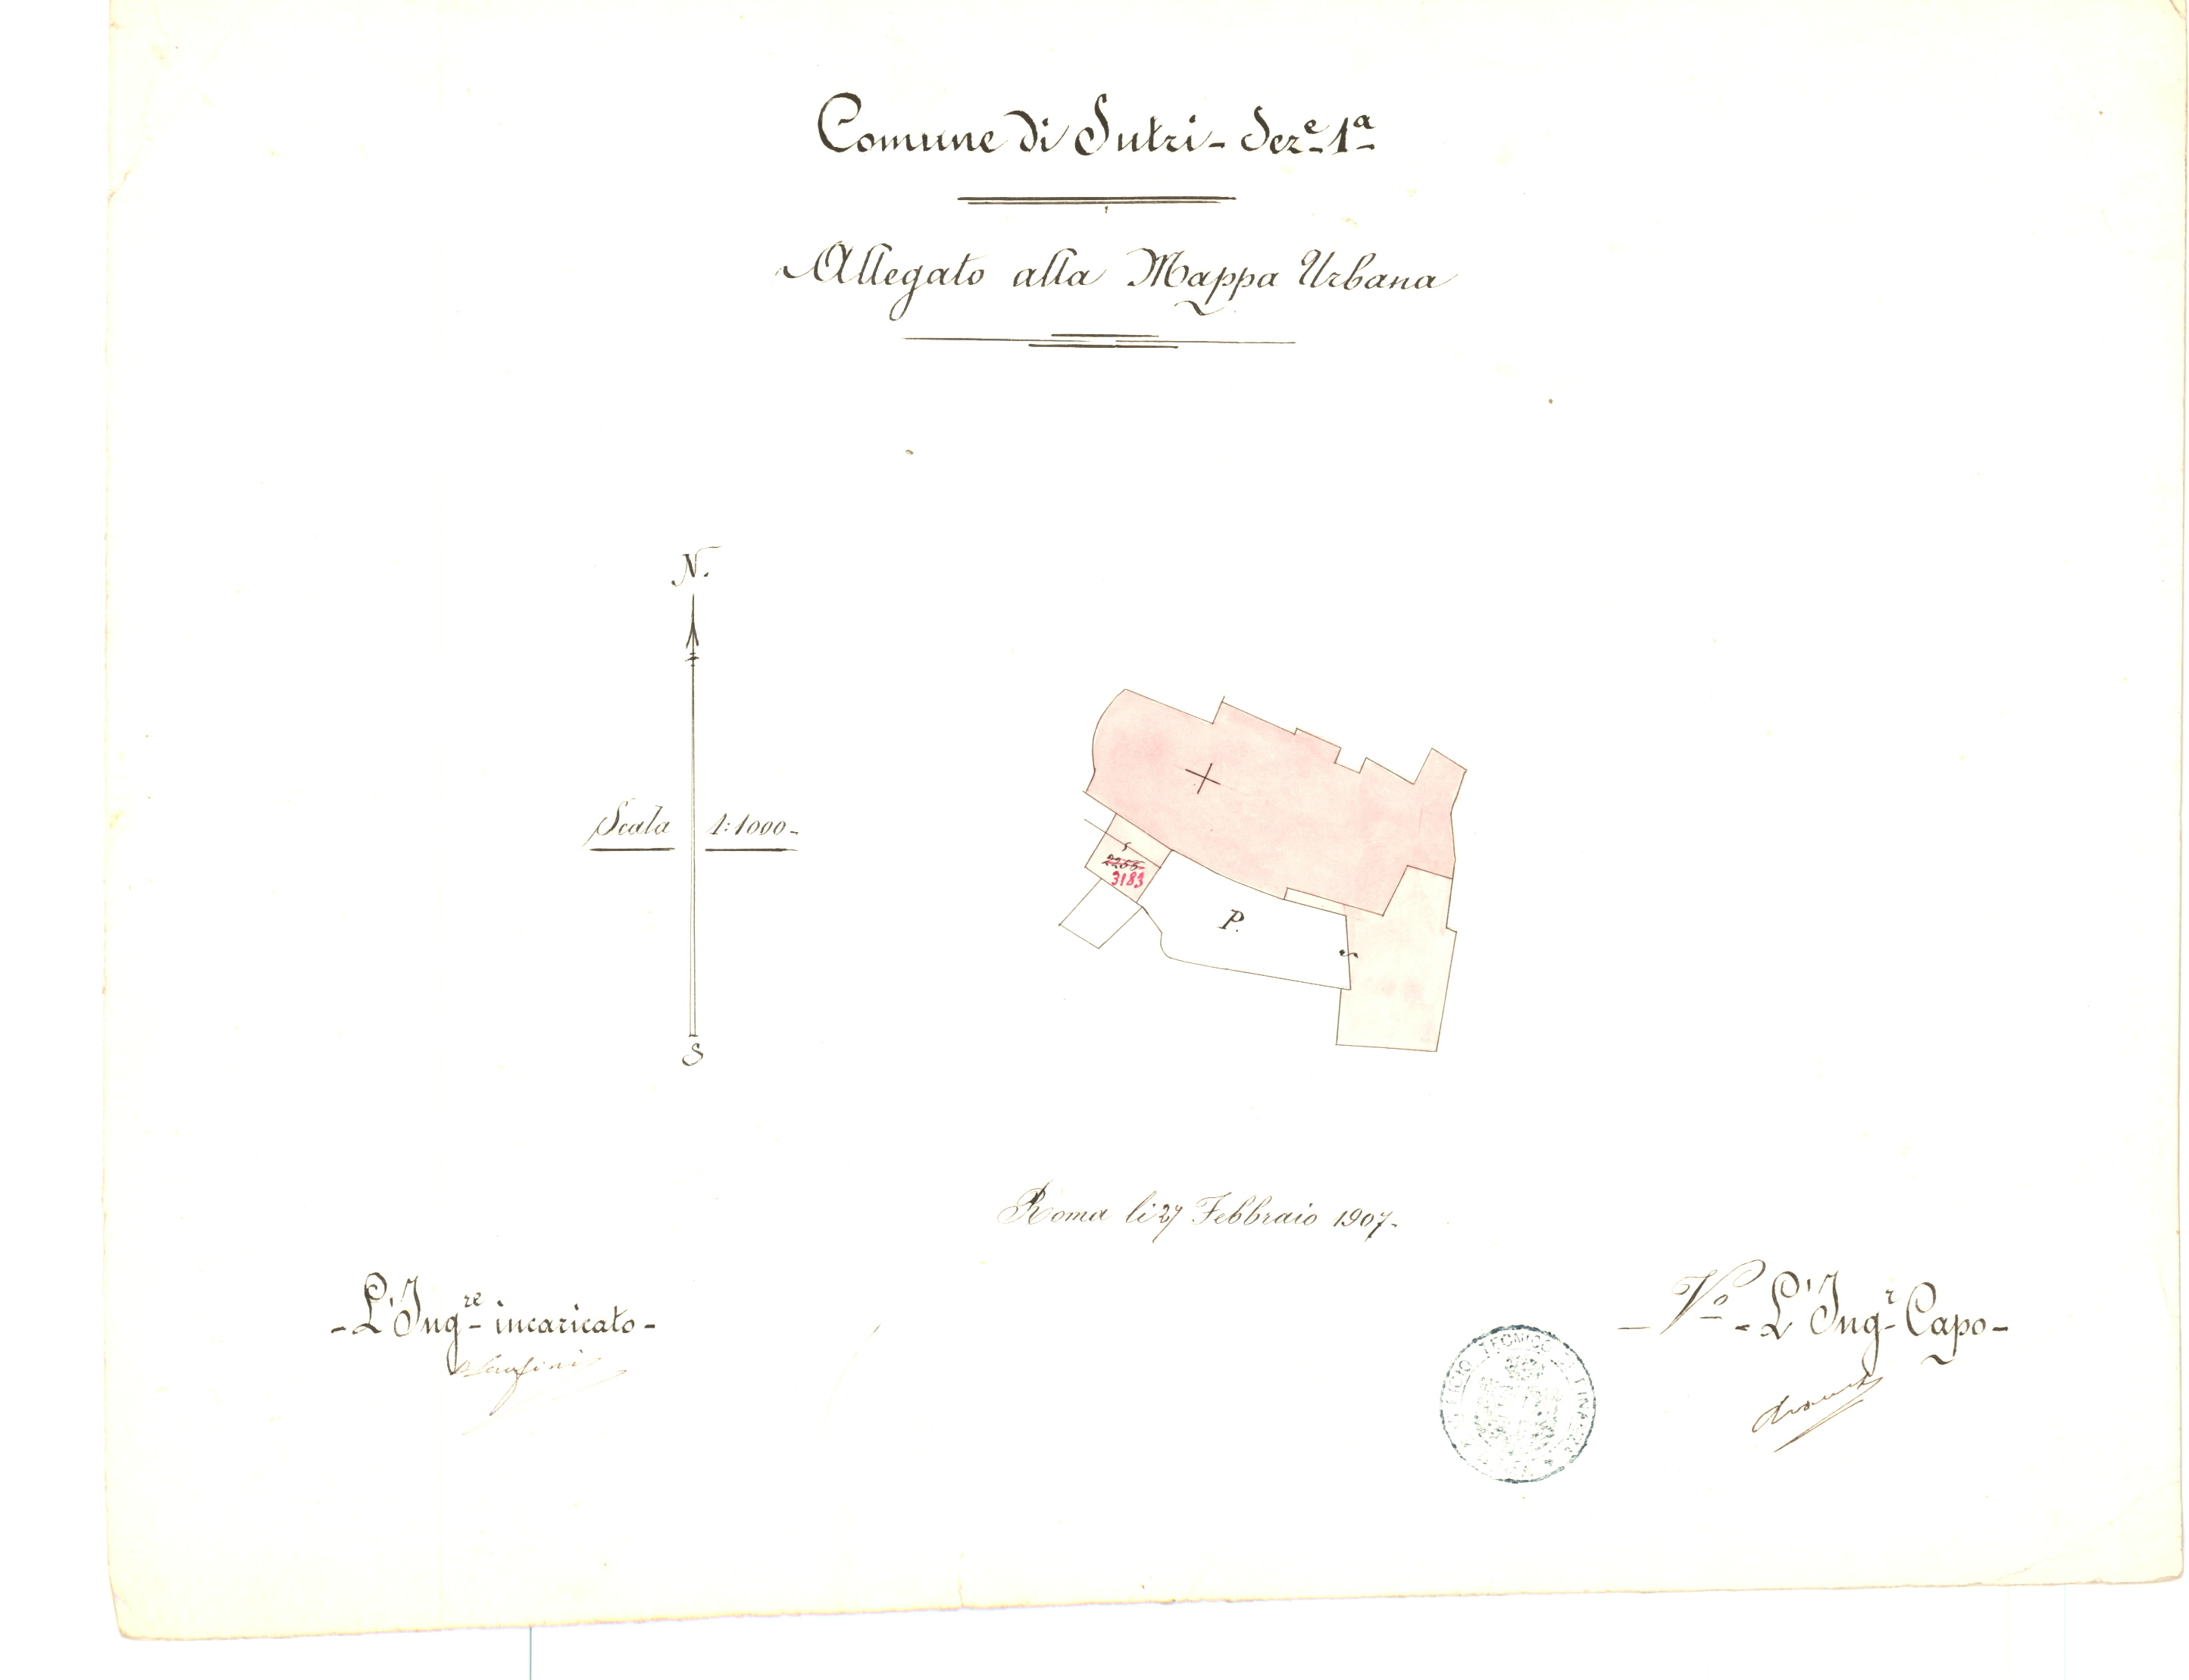 Comune di Sutri - Sez.e 1a
Allegato alla Mappa Urbana
N.
Scala 1:1000
2255
3183
P.
S
Roma li 27 Febbraio 1907.
L'Ing.re incaricato
V.o L'Ing.r Capo
UFFICIO TECNICO DI FINANZA